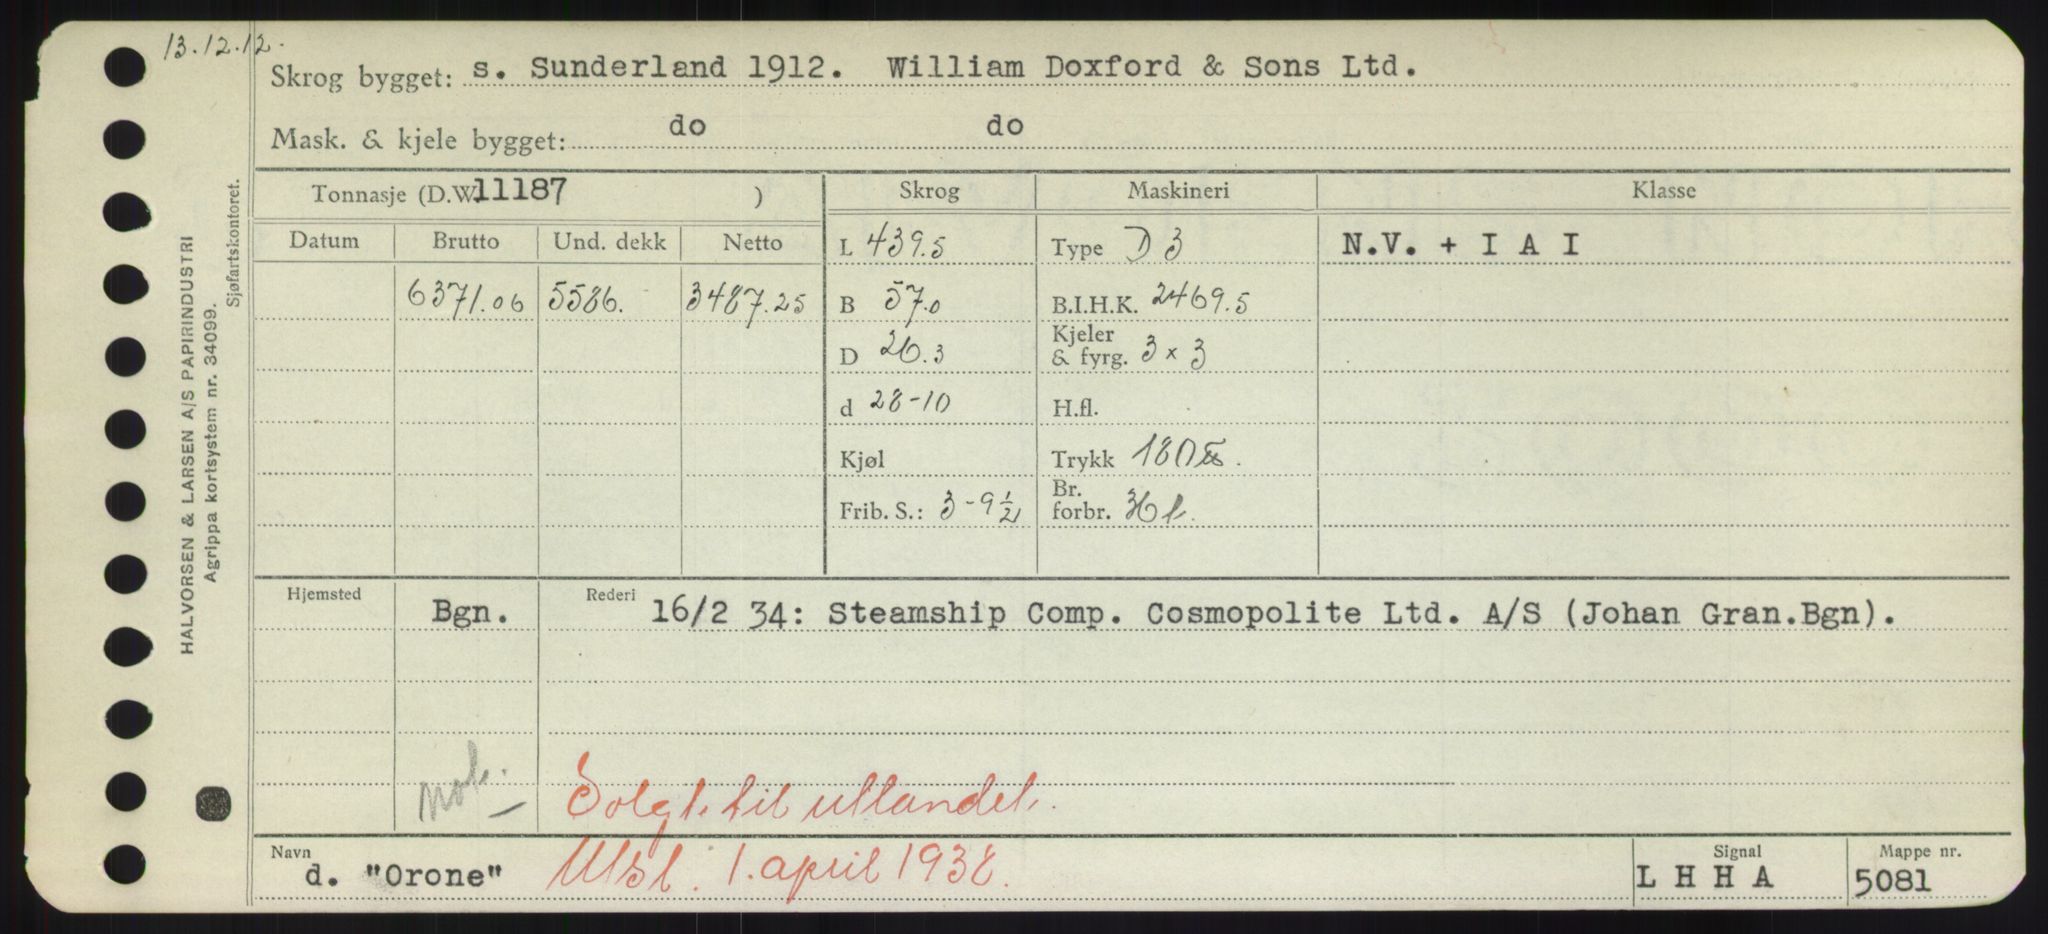 13.12.12.
Skrog bygget: s. Sunderland 1912. William Doxford & Sons Ltd.
Mask. & kjele bygget: do do
Tonnasje (D.W. 11187 ) Skrog Maskineri Klasse
Datum Brutto Und. dekk Netto L 439.5 Type D 3 N.V. + I A I
6371.06 5586. 3487.25 B 57.0 B.I.H.K. 2469.5
D 26.3 Kjeler & fyrg. 3 x 3
d 28-10 H.fl.
Kjøl Trykk 180
Frib. S.: 3-9½ Br. forbr. 36 t.
Hjemsted Bgn. Rederi 16/2 34: Steamship Comp. Cosmopolite Ltd. A/S (Johan Gran.Bgn).
not. Solgt. til utlandet.
Navn d. "Orone" Utsl. 1. april 1938. Signal L H H A Mappe nr. 5081
HALVORSEN & LARSEN A/S PAPIRINDUSTRI
Agrippa kortsystem nr. 34099.
Sjøfartskontoret.